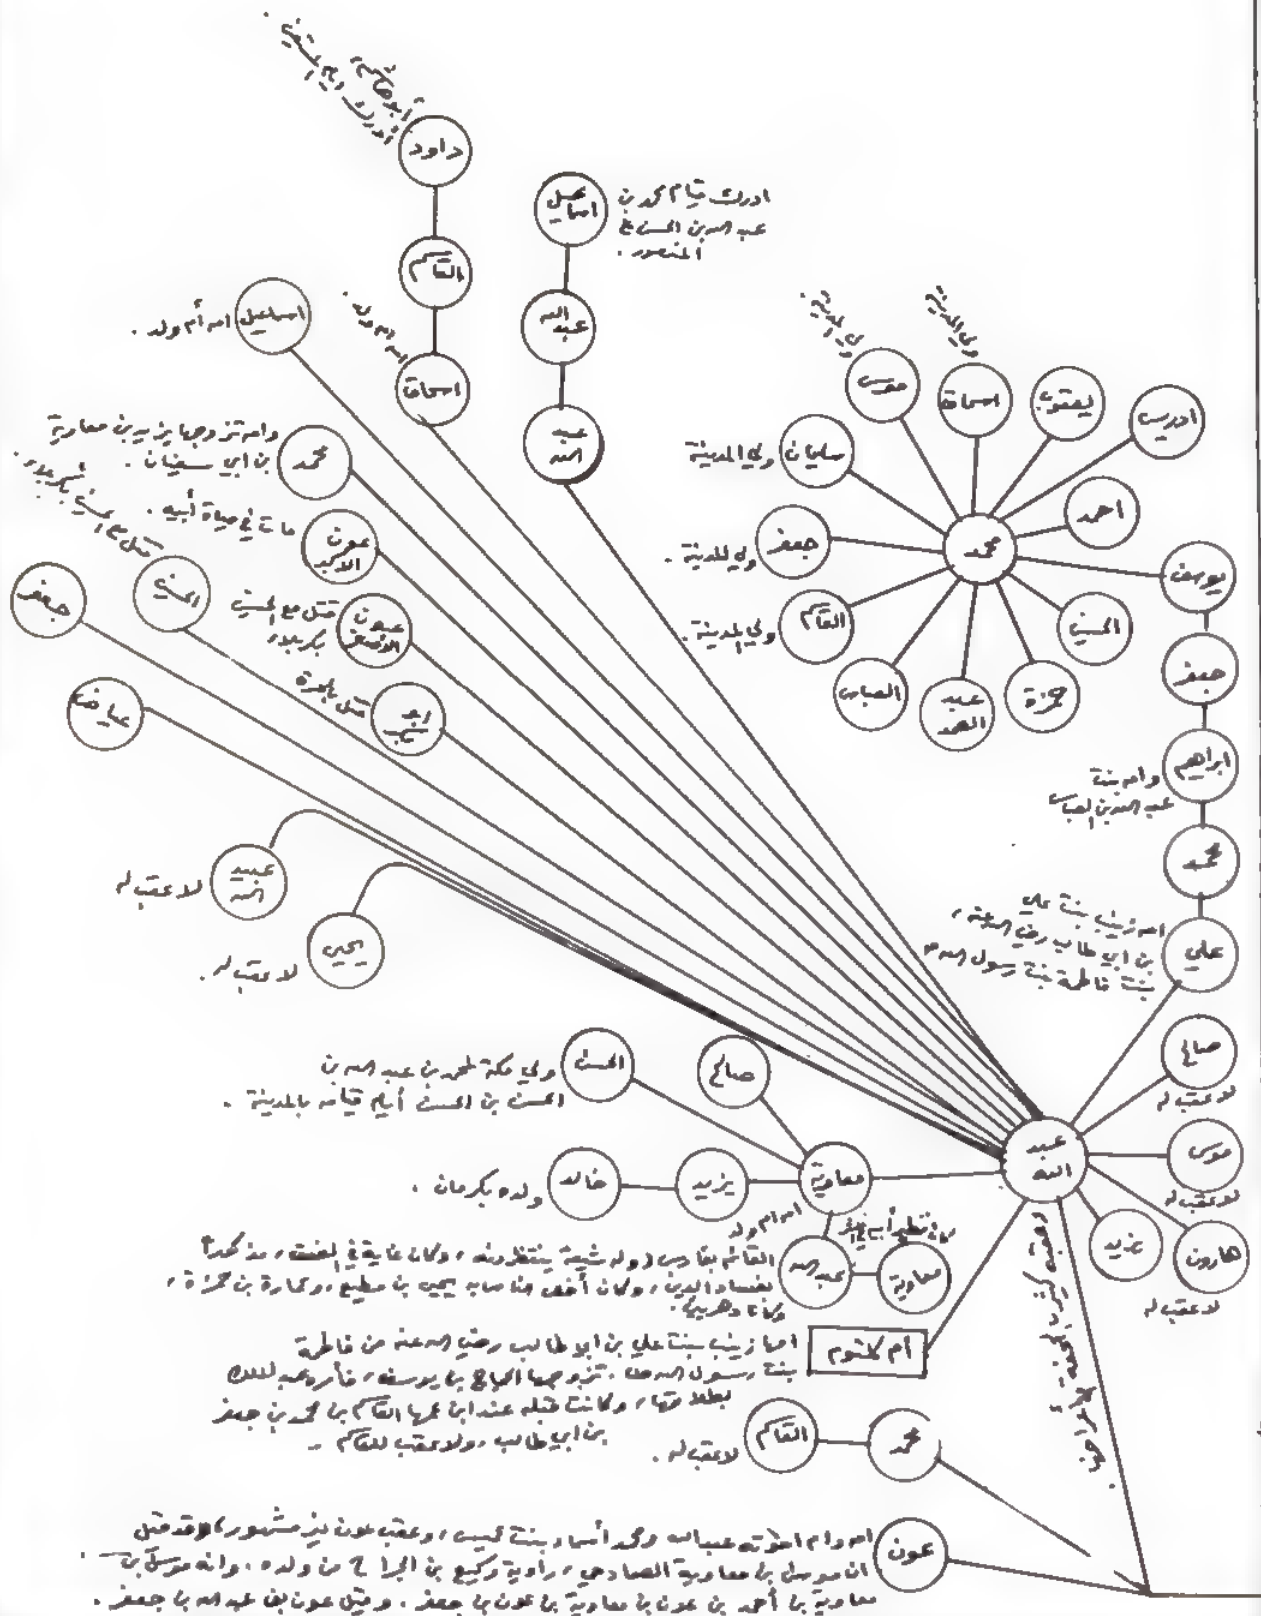 أبو هاشم،
أدرك أيام المستعين .
داود
القاسم
اسحاق
امه أم ولد .
اسماعيل
عبد الله
عبد الله
ادرك قيام محمد بن
عبد الله بن الحسن ع
المنصور .
اسماعيل
امه أم ولد .
محمد
وامه تزوجها يزيد بن معاوية
بن أبي سفيان .
عون الاكبر
مات في حياة أبيه .
عون الأصغر
قتل مع الحسين
بكربلاء
ابو بكر
قتل بالحرة
الحسين
قتل مع الحسين بكربلاء .
جعفر
عياض
عبيد الله
لا عقب له
يحيى
لا عقب له .
موسى
ولي المدينة .
اسحاق
ولي المدينة
يعقوب
ادريس
سليمان
ولي المدينة
احمد
محمد
جعفر
ولي المدينة .
يوسف
القاسم
ولي المدينة .
الحسين
العباس
عبد الصمد
حمزة
جعفر
ابراهيم
وامه بنت
عبد الله بن العباس
محمد
علي
امه زينب بنت علي
بن ابي طالب رضي الله عنه ،
بنت فاطمة بنت رسول الله ص
صالح
لا عقب له
موسى
لا عقب له
هارون
لا عقب له
يزيد
عبد الله
الحسن
ولي مكة لمحمد بن عبد الله بن
الحسن بن الحسن أيام قيامه بالمدينة .
صالح
معاوية
يزيد
خالد
ولده بكرمان .
امه ام ولد
عبد الله
معاوية
القائم بفارس (وله شيعة ينتظرونه ، وكان غاية في الفسق ، مذكوراً
بفساد الدين ، وكان أخص الناس به يحيى بن مطيع ، وعمارة بن حمزة ،
وكانا دهريين .
أم كلثوم
امها زينب بنت علي بن ابي طالب رضي الله عنه من فاطمة
بنت رسول الله ص . تزوجها الحجاج بن يوسف ، فأمره عبد الملك
بطلاقها ، وكانت قبله عند ابن عمها القاسم بن محمد بن جعفر
بن ابي طالب . ولا عقب للقاسم .
محمد
القاسم
لا عقب له .
عون
امه وام اخوته عبد الله ومحمد أسماء بنت عميس ، وعقب عون غير مشهور ، وقد قيل
ان موسى بن معاوية الصمادحي ، راوية وكيع بن الجراح من ولده . وانه موسى بن
معاوية بن أحمد بن عون بن معاوية بن عون بن جعفر . وقيل عون بن عبد الله بن جعفر .